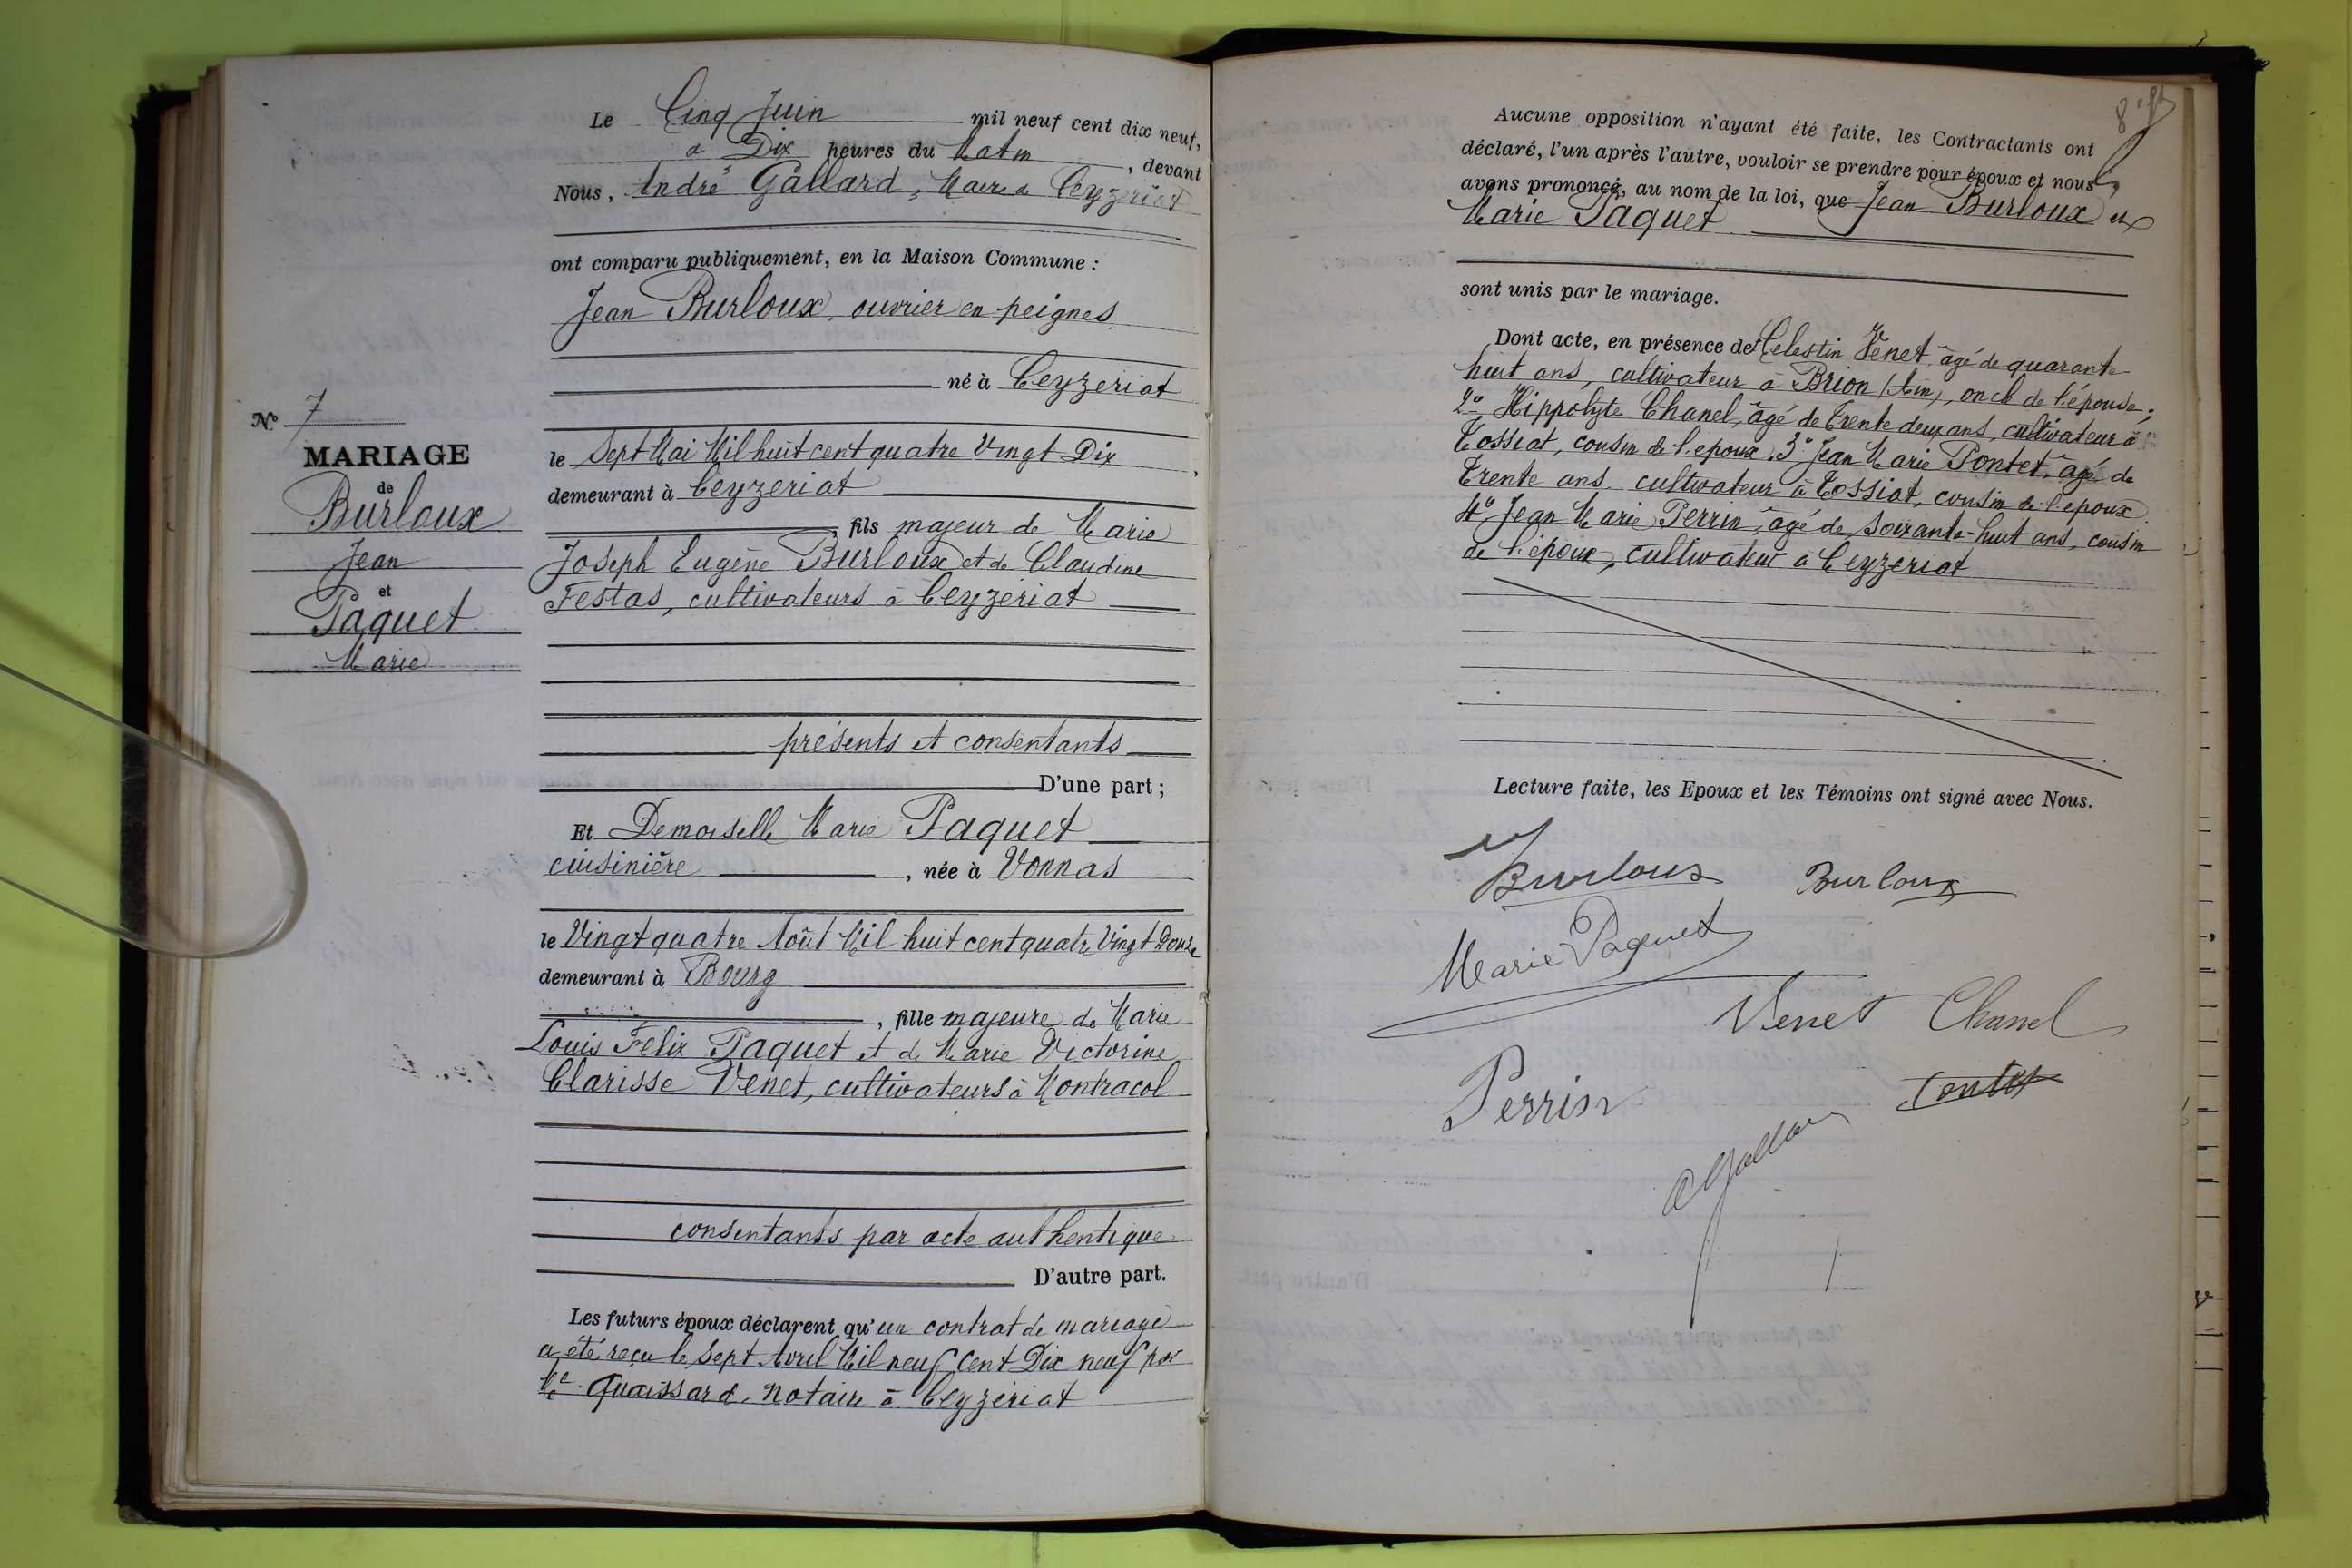 Le Cinq Juin mil neuf cent dix neuf,
à Dix heures du Matin, devant
Nous, André Gallard, Maire de Ceyzériat
ont comparu publiquement, en la Maison Commune :
Jean Burloux, ouvrier en peignes
né à Ceyzeriat
le Sept Mai Mil huit cent quatre Vingt Dix,
demeurant à Ceyzeriat
fils majeur de Marie
Joseph Eugène Burloux et de Claudine
Festas, cultivateurs à Ceyzeriat
présents et consentants
D'une part ;
Et Demoiselle Marie Paquet
cuisinière, née à Vonnas
le Vingt quatre Août Mil huit cent quatre Vingt Douze
demeurant à Bourg
, fille majeure de Marie
Louis Felix Paquet et de Marie Victorine
Clarisse Venet, cultivateurs à Montracol
consentants par acte authentique
D'autre part.
Les futurs époux déclarent qu'un contrat de mariage
a été reçu le Sept Avril Mil neuf Cent Dix neuf par
Me Quaissard, Notaire à Ceyzériat
N° 7
MARIAGE
de
Burloux
Jean
et
Paquet
Marie
Aucune opposition n'ayant été faite, les Contractants ont
déclaré, l'un après l'autre, vouloir se prendre pour époux et nous
avons prononcé, au nom de la loi, que Jean Burloux et
Marie Paquet
sont unis par le mariage.
Dont acte, en présence de Celestin Venet, âgé de quarante-
huit ans, cultivateur à Brion (Ain), oncle de l'épouse ;
2° Hippolyte Chanel, âgé de Trente deux ans, cultivateur à
Tossiat, cousin de l'epoux. 3° Jean Marie Pontet, âgé de
Trente ans, cultivateur à Tossiat, cousin de l'epoux
4° Jean Marie Perrin, âgé de Soixante-huit ans, cousin
de l'époux, cultivateur à Ceyzeriat
Lecture faite, les Epoux et les Témoins ont signé avec Nous.
Burloux Burloux
Marie Paquet
Venet Chanel
Perrin Pontet
A Gallard